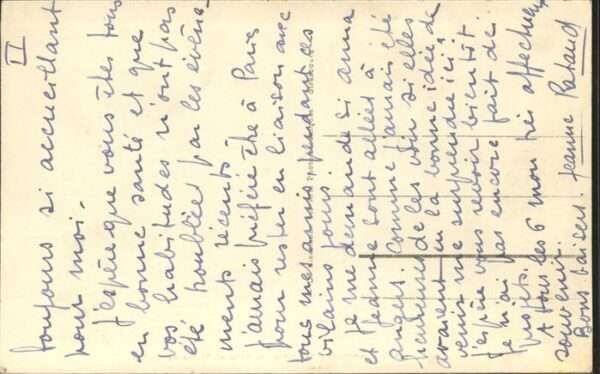 II
toujours si accueillant
pour moi.
J'espère que vous êtes tous
en bonne santé et que
vos habitudes n'ont pas
été troublée par les évène-
ments récents
J'aurais préféré être à Paris
pour rester en liaison avec
tous mes amis pendant ces
vilains jours.
Je me demande si Anna
et Jeanne sont allées à
Angers. Comme j'aurais été
heureuse de les voir si elles
avaient eu la bonne idée de
venir me surprendre ici!
J'espère vous revoir bientôt
Je n'ai pas encore fait de
projets.
A tous les 6 mon très affectueux
souvenir.
Bons baisers. Jeanne